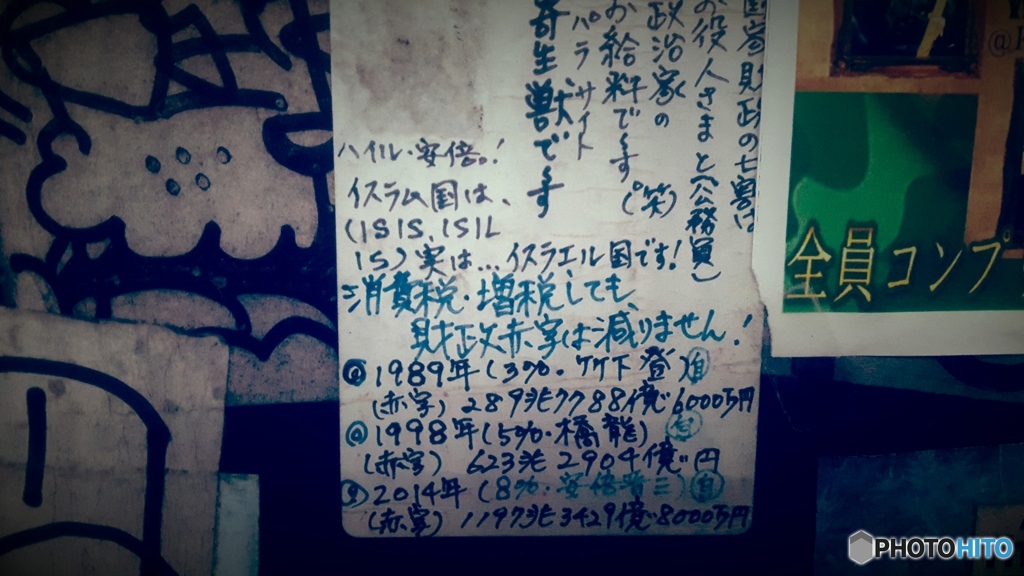 国家財政の七割は
お役人さまと(公務員)
政治家の
お給料です(笑)
パラサイト
寄生獣です
ハイル・安倍。!
イスラム国は、
(ISIS、ISIL
IS)実は…イスラエル国です!
消費税・増税しても、
財政赤字は減りません!
1989年(3%・ケケ下登)自
(赤字)289兆7788億6000万円
1998年(5%・橋龍)自
(赤字) 623兆2904億円
2014年(8%・安倍晋三)自
(赤字)1197兆3429億8000万円
全員コンプ
PHOTOHITO